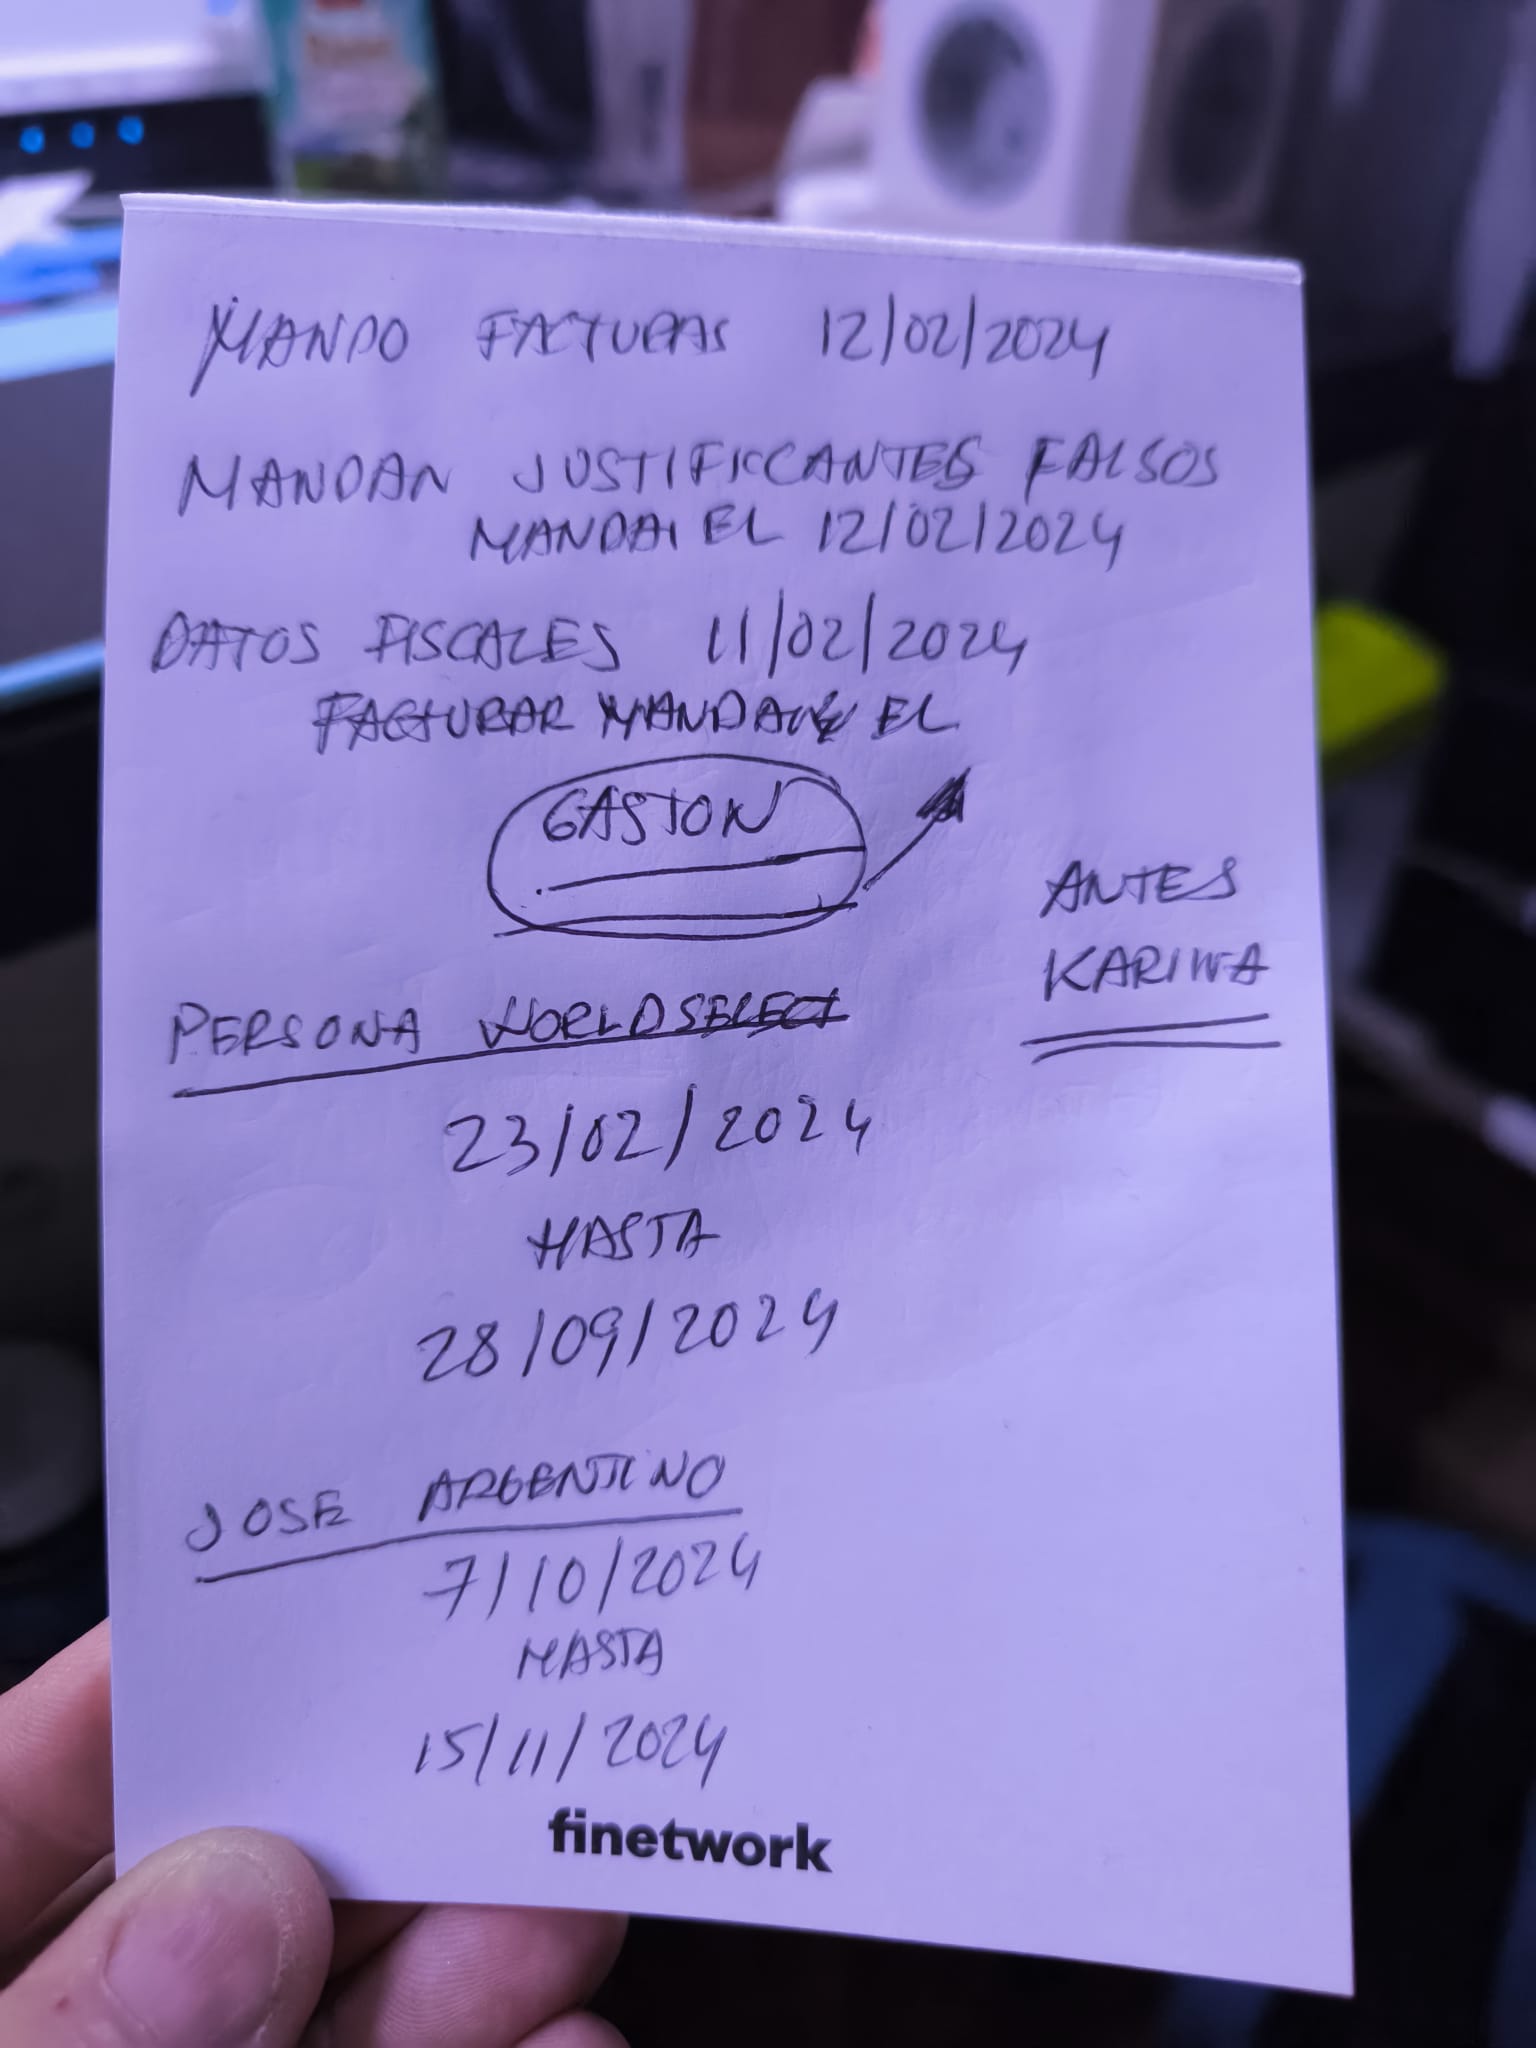 MANDO FACTURAS 12/02/2024
MANDAN JUSTIFICCANTES FALSOS
MANDAN EL 12/02/2024
DATOS FISCALES 11/02/2024
FACTURAR MANDA EL
GASTON
ANTES
KARINA
PERSONA WORLDSELECT
23/02/2024
HASTA
28/09/2024
JOSE ARGENTINO
7/10/2024
HASTA
15/11/2024
finetwork